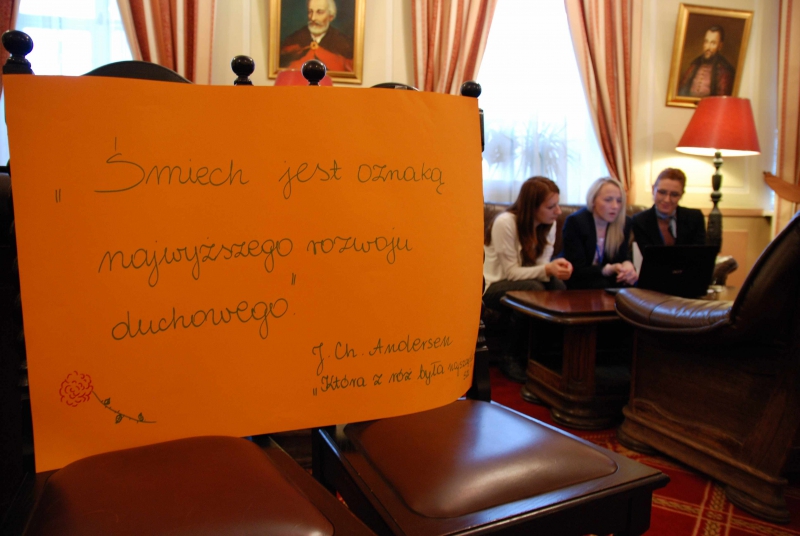 „Śmiech jest oznaką
najwyższego rozwoju
duchowego".
J. Ch. Andersen
„Która z róż była